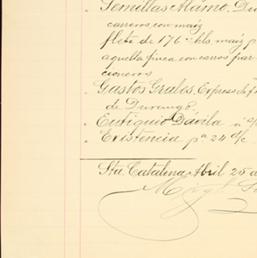 Semillas Alamo. De
carreros con maiz
flete de 176 hls. maiz p
aquella finca con carros par
cioneros
Gastos Grales. Express de
de Durango.
Eutiquio Davila
Existencia pa 24 d/c
Sta. Catalina Abril 25 d